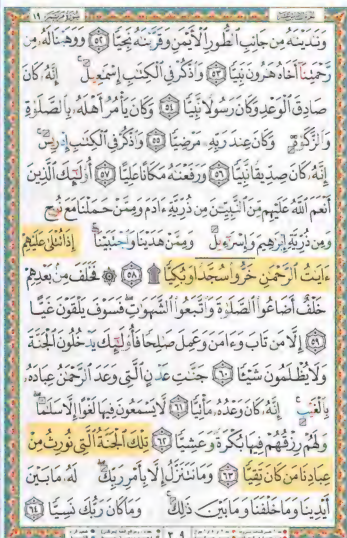 سورة مريم ١٩
وَنَٰدَيْنَٰهُ مِن جَانِبِ ٱلطُّورِ ٱلْأَيْمَنِ وَقَرَّبْنَٰهُ نَجِيًّا ٥٢ وَوَهَبْنَا لَهُۥ مِن
رَّحْمَتِنَآ أَخَاهُ هَٰرُونَ نَبِيًّا ٥٣ وَٱذْكُرْ فِى ٱلْكِتَٰبِ إِسْمَٰعِيلَ ۚ إِنَّهُۥ كَانَ
صَادِقَ ٱلْوَعْدِ وَكَانَ رَسُولًا نَّبِيًّا ٥٤ وَكَانَ يَأْمُرُ أَهْلَهُۥ بِٱلصَّلَوٰةِ
وَٱلزَّكَوٰةِ وَكَانَ عِندَ رَبِّهِۦ مَرْضِيًّا ٥٥ وَٱذْكُرْ فِى ٱلْكِتَٰبِ إِدْرِيسَ ۚ
إِنَّهُۥ كَانَ صِدِّيقًا نَّبِيًّا ٥٦ وَرَفَعْنَٰهُ مَكَانًا عَلِيًّا ٥٧ أُو۟لَٰٓئِكَ ٱلَّذِينَ
أَنْعَمَ ٱللَّهُ عَلَيْهِم مِّنَ ٱلنَّبِيِّـۧنَ مِن ذُرِّيَّةِ ءَادَمَ وَمِمَّنْ حَمَلْنَا مَعَ نُوحٍ
وَمِن ذُرِّيَّةِ إِبْرَٰهِيمَ وَإِسْرَٰٓءِيلَ وَمِمَّنْ هَدَيْنَا وَٱجْتَبَيْنَآ ۚ إِذَا تُتْلَىٰ عَلَيْهِمْ
ءَايَٰتُ ٱلرَّحْمَٰنِ خَرُّوا۟ سُجَّدًا وَبُكِيًّا ۩ ٥٨ ۞ فَخَلَفَ مِنۢ بَعْدِهِمْ
خَلْفٌ أَضَاعُوا۟ ٱلصَّلَوٰةَ وَٱتَّبَعُوا۟ ٱلشَّهَوَٰتِ ۖ فَسَوْفَ يَلْقَوْنَ غَيًّا
٥٩ إِلَّا مَن تَابَ وَءَامَنَ وَعَمِلَ صَٰلِحًا فَأُو۟لَٰٓئِكَ يَدْخُلُونَ ٱلْجَنَّةَ
وَلَا يُظْلَمُونَ شَيْـًٔا ٦٠ جَنَّٰتِ عَدْنٍ ٱلَّتِى وَعَدَ ٱلرَّحْمَٰنُ عِبَادَهُۥ
بِٱلْغَيْبِ ۚ إِنَّهُۥ كَانَ وَعْدُهُۥ مَأْتِيًّا ٦١ لَّا يَسْمَعُونَ فِيهَا لَغْوًا إِلَّا سَلَٰمًا ۖ
وَلَهُمْ رِزْقُهُمْ فِيهَا بُكْرَةً وَعَشِيًّا ٦٢ تِلْكَ ٱلْجَنَّةُ ٱلَّتِى نُورِثُ مِنْ
عِبَادِنَا مَن كَانَ تَقِيًّا ٦٣ وَمَا نَتَنَزَّلُ إِلَّا بِأَمْرِ رَبِّكَ ۖ لَهُۥ مَا بَيْنَ
أَيْدِينَا وَمَا خَلْفَنَا وَمَا بَيْنَ ذَٰلِكَ ۚ وَمَا كَانَ رَبُّكَ نَسِيًّا ٦٤
٣٠٩